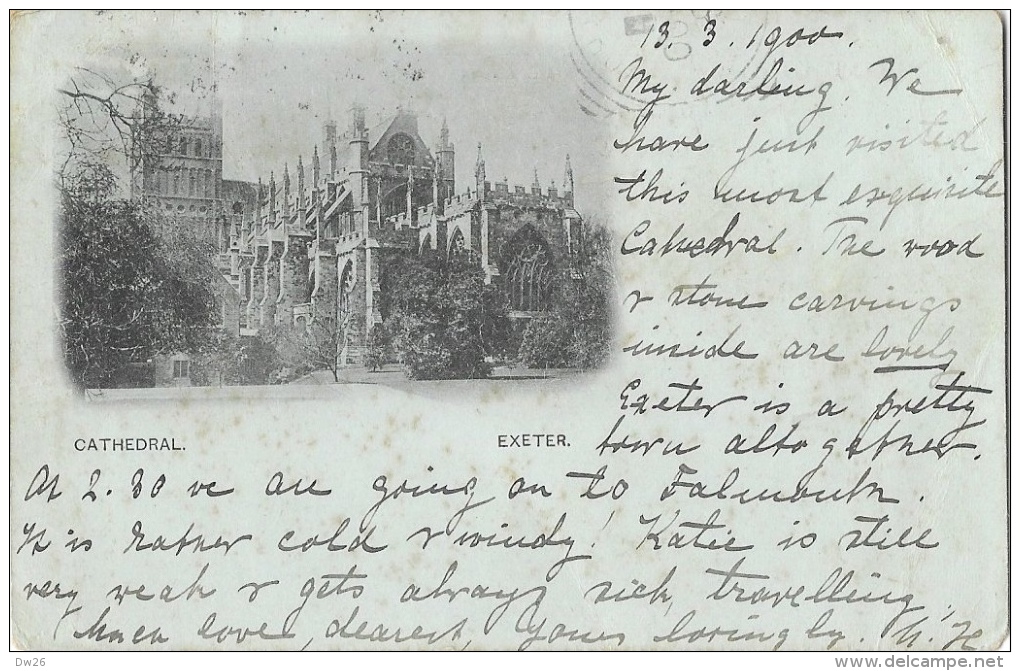 13. 3. 1900.
My darling. We
have just visited
this most exquisite
Cathedral. The wood
& stone carvings
inside are lovely
Exeter is a pretty
town altogether.
CATHEDRAL. EXETER.
At 2.30 we are going on to Falmouth.
It is rather cold & windy! Katie is still
very weak & gets always sick, travelling.
Much love, dearest, yours lovingly.
Dw26
www.delcampe.net